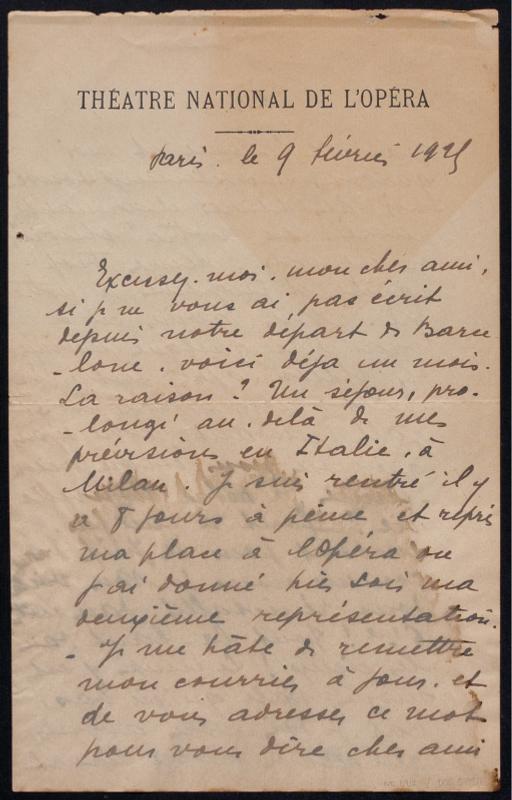 THÉATRE NATIONAL DE L'OPÉRA
Paris. le 9 février 1925
Excusez-moi. mon cher ami,
si je ne vous ai pas écrit
depuis notre départ de Barce
-lone. voici déja un mois.
La raison? Un séjour, pro-
-longé au-delà de mes
prévisions en Italie, à
Milan. Je suis rentré il y
a 8 jours à peine et repris
ma place à l'Opéra ou
j'ai donné hier soir ma
deuxième représentation.
- Je me hâte de remettre
mon courrier à jour. et
de vous adresser ce mot
pour vous dire cher ami